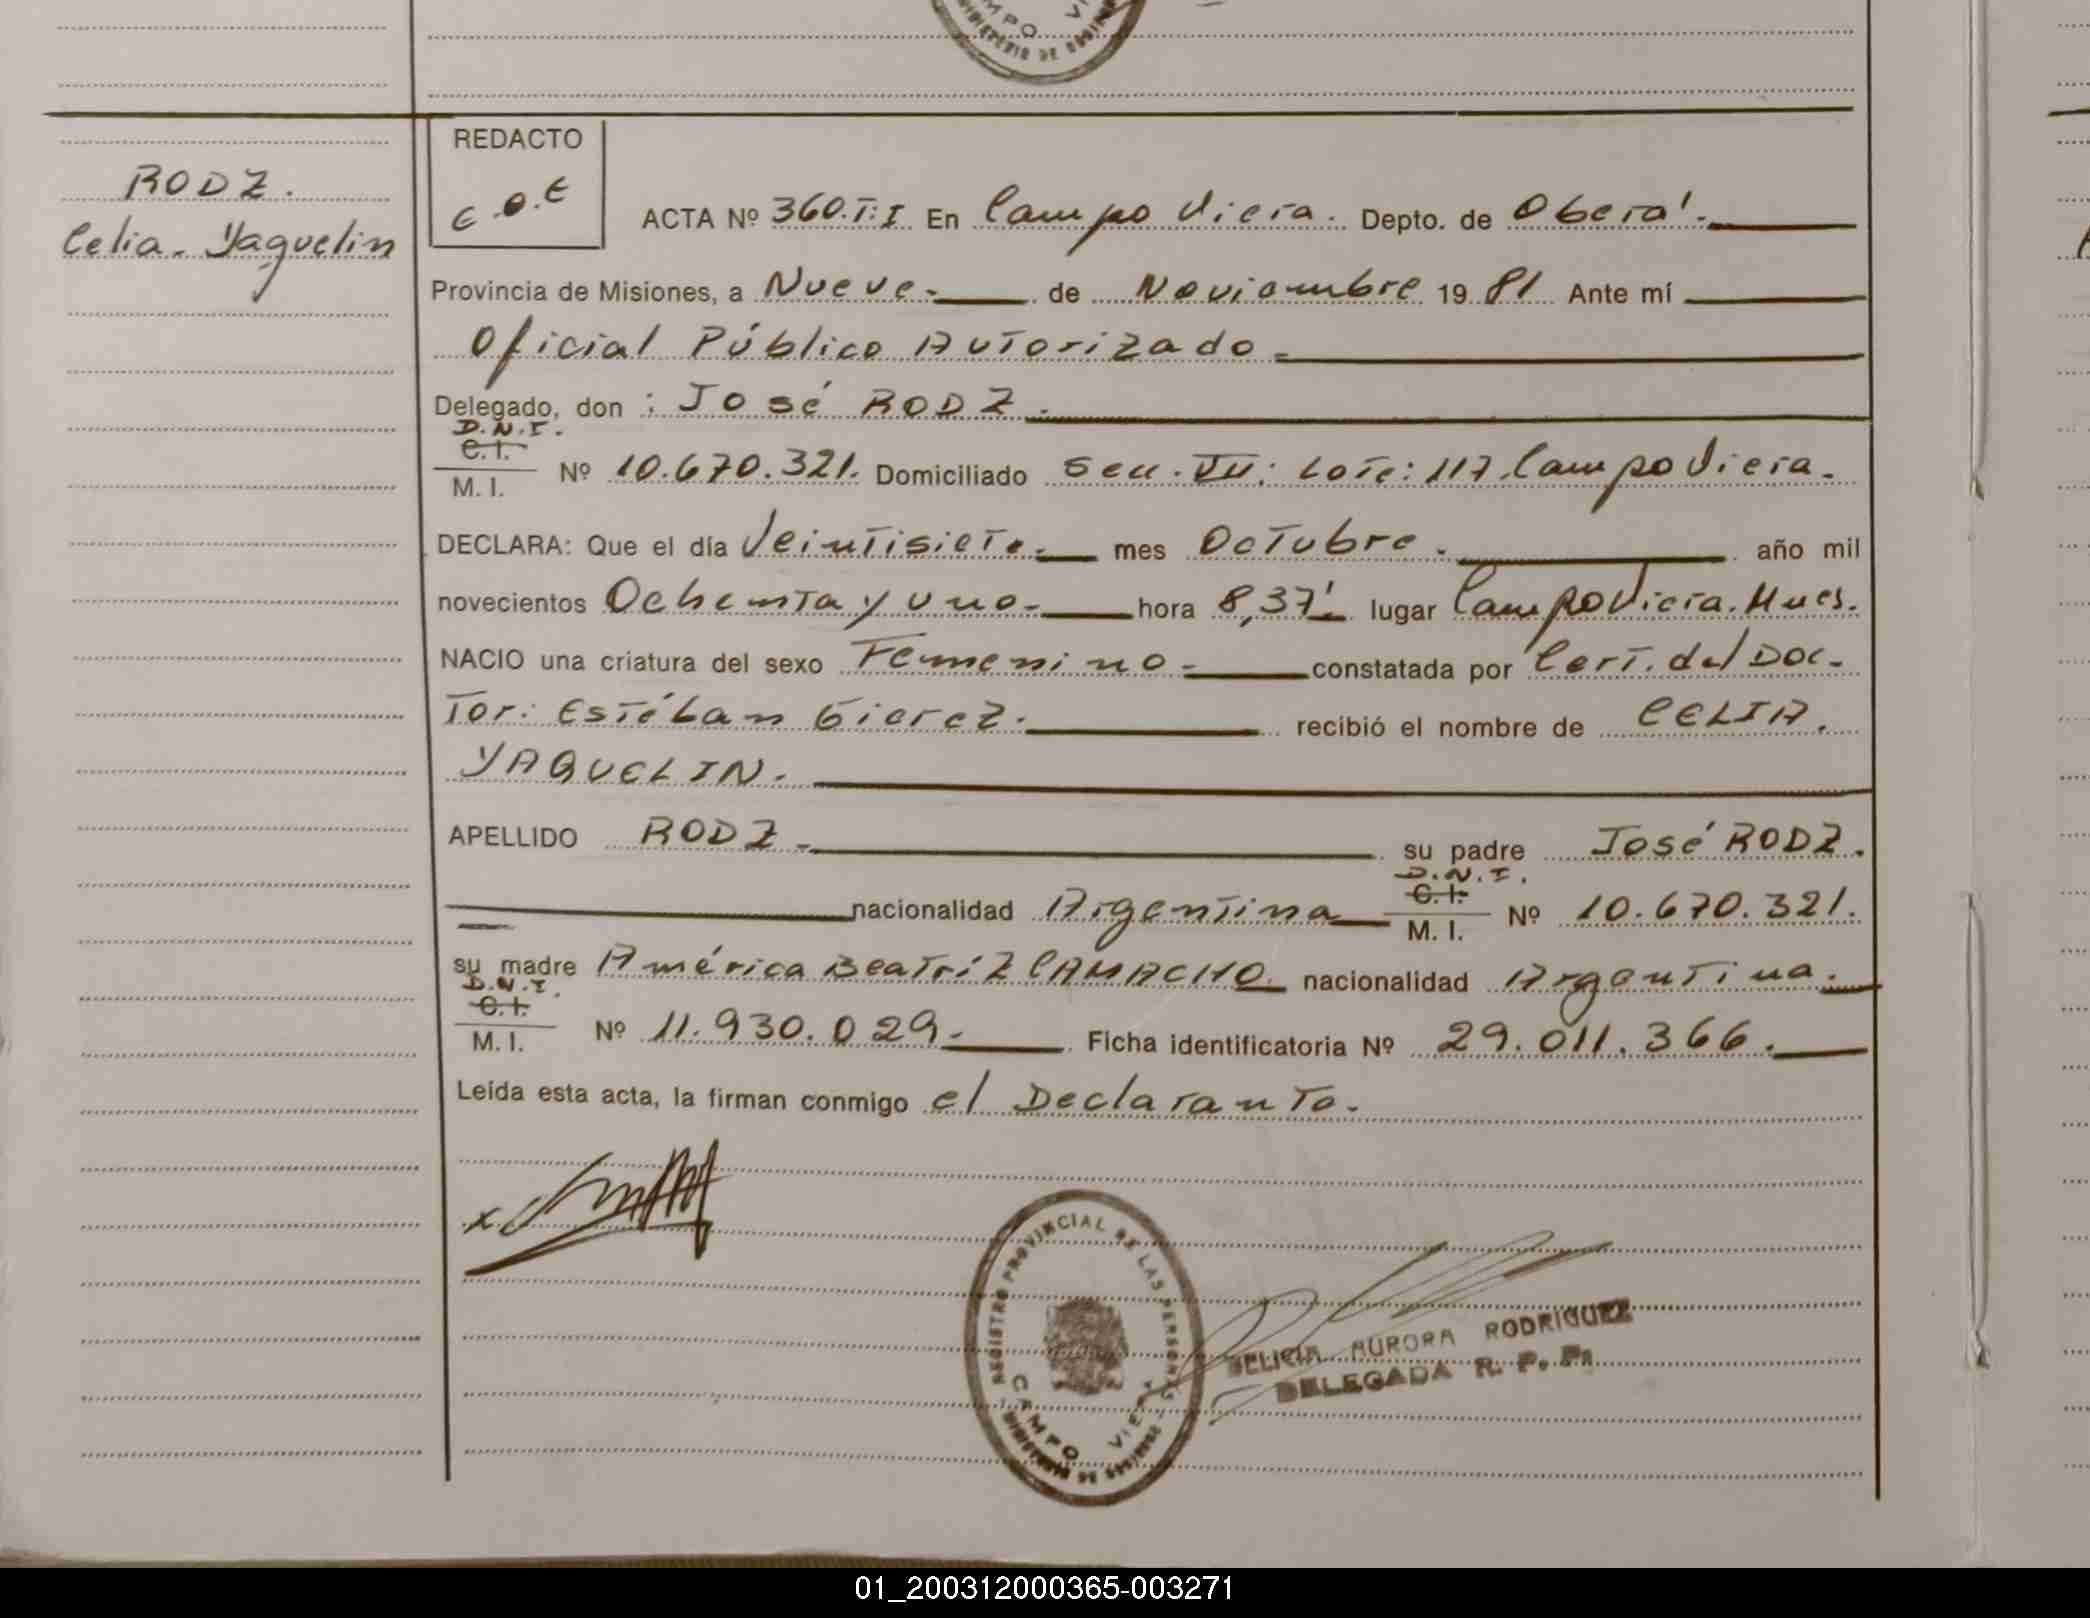 CAMPO VI
MINISTERIO DE GOBIER
RODZ.
Celia. Yaquelin
REDACTO
E.O.E
ACTA Nº 360.T:I En Campo Viera. Depto. de Oberá.
Provincia de Misiones, a Nueve. de Noviembre 1981 Ante mí
Oficial Público Autorizado
Delegado, don : José RODZ.
D.N.I.
C.I.
M.I. Nº 10.670.321. Domiciliado Secc. VII: Lote: 117. Campo Viera.
DECLARA: Que el día Veintisiete. mes Octubre. año mil
novecientos Ochenta y uno. hora 8,37'. lugar Campo Viera. Mnes.
NACIO una criatura del sexo Femenino. constatada por Cert. del Doc-
tor: Estéban Gierez. recibió el nombre de CELIA.
YAQUELIN.
APELLIDO RODZ su padre José RODZ.
D.N.I.
C.I.
nacionalidad Argentina M.I. Nº 10.670.321.
su madre América Beatríz CAMACHO. nacionalidad Argentina.
D.N.I.
C.I.
M.I. Nº 11.930.029. Ficha identificatoria Nº 29.011.366.
Leída esta acta, la firman conmigo el Declarante.
x
REGISTRO PROVINCIAL DE LAS PERSONAS
CAMPO VIERA
MINISTERIO DE GOBIERNO
AURORA RODRIGUEZ
DELEGADA R. P. P.
01_200312000365-003271